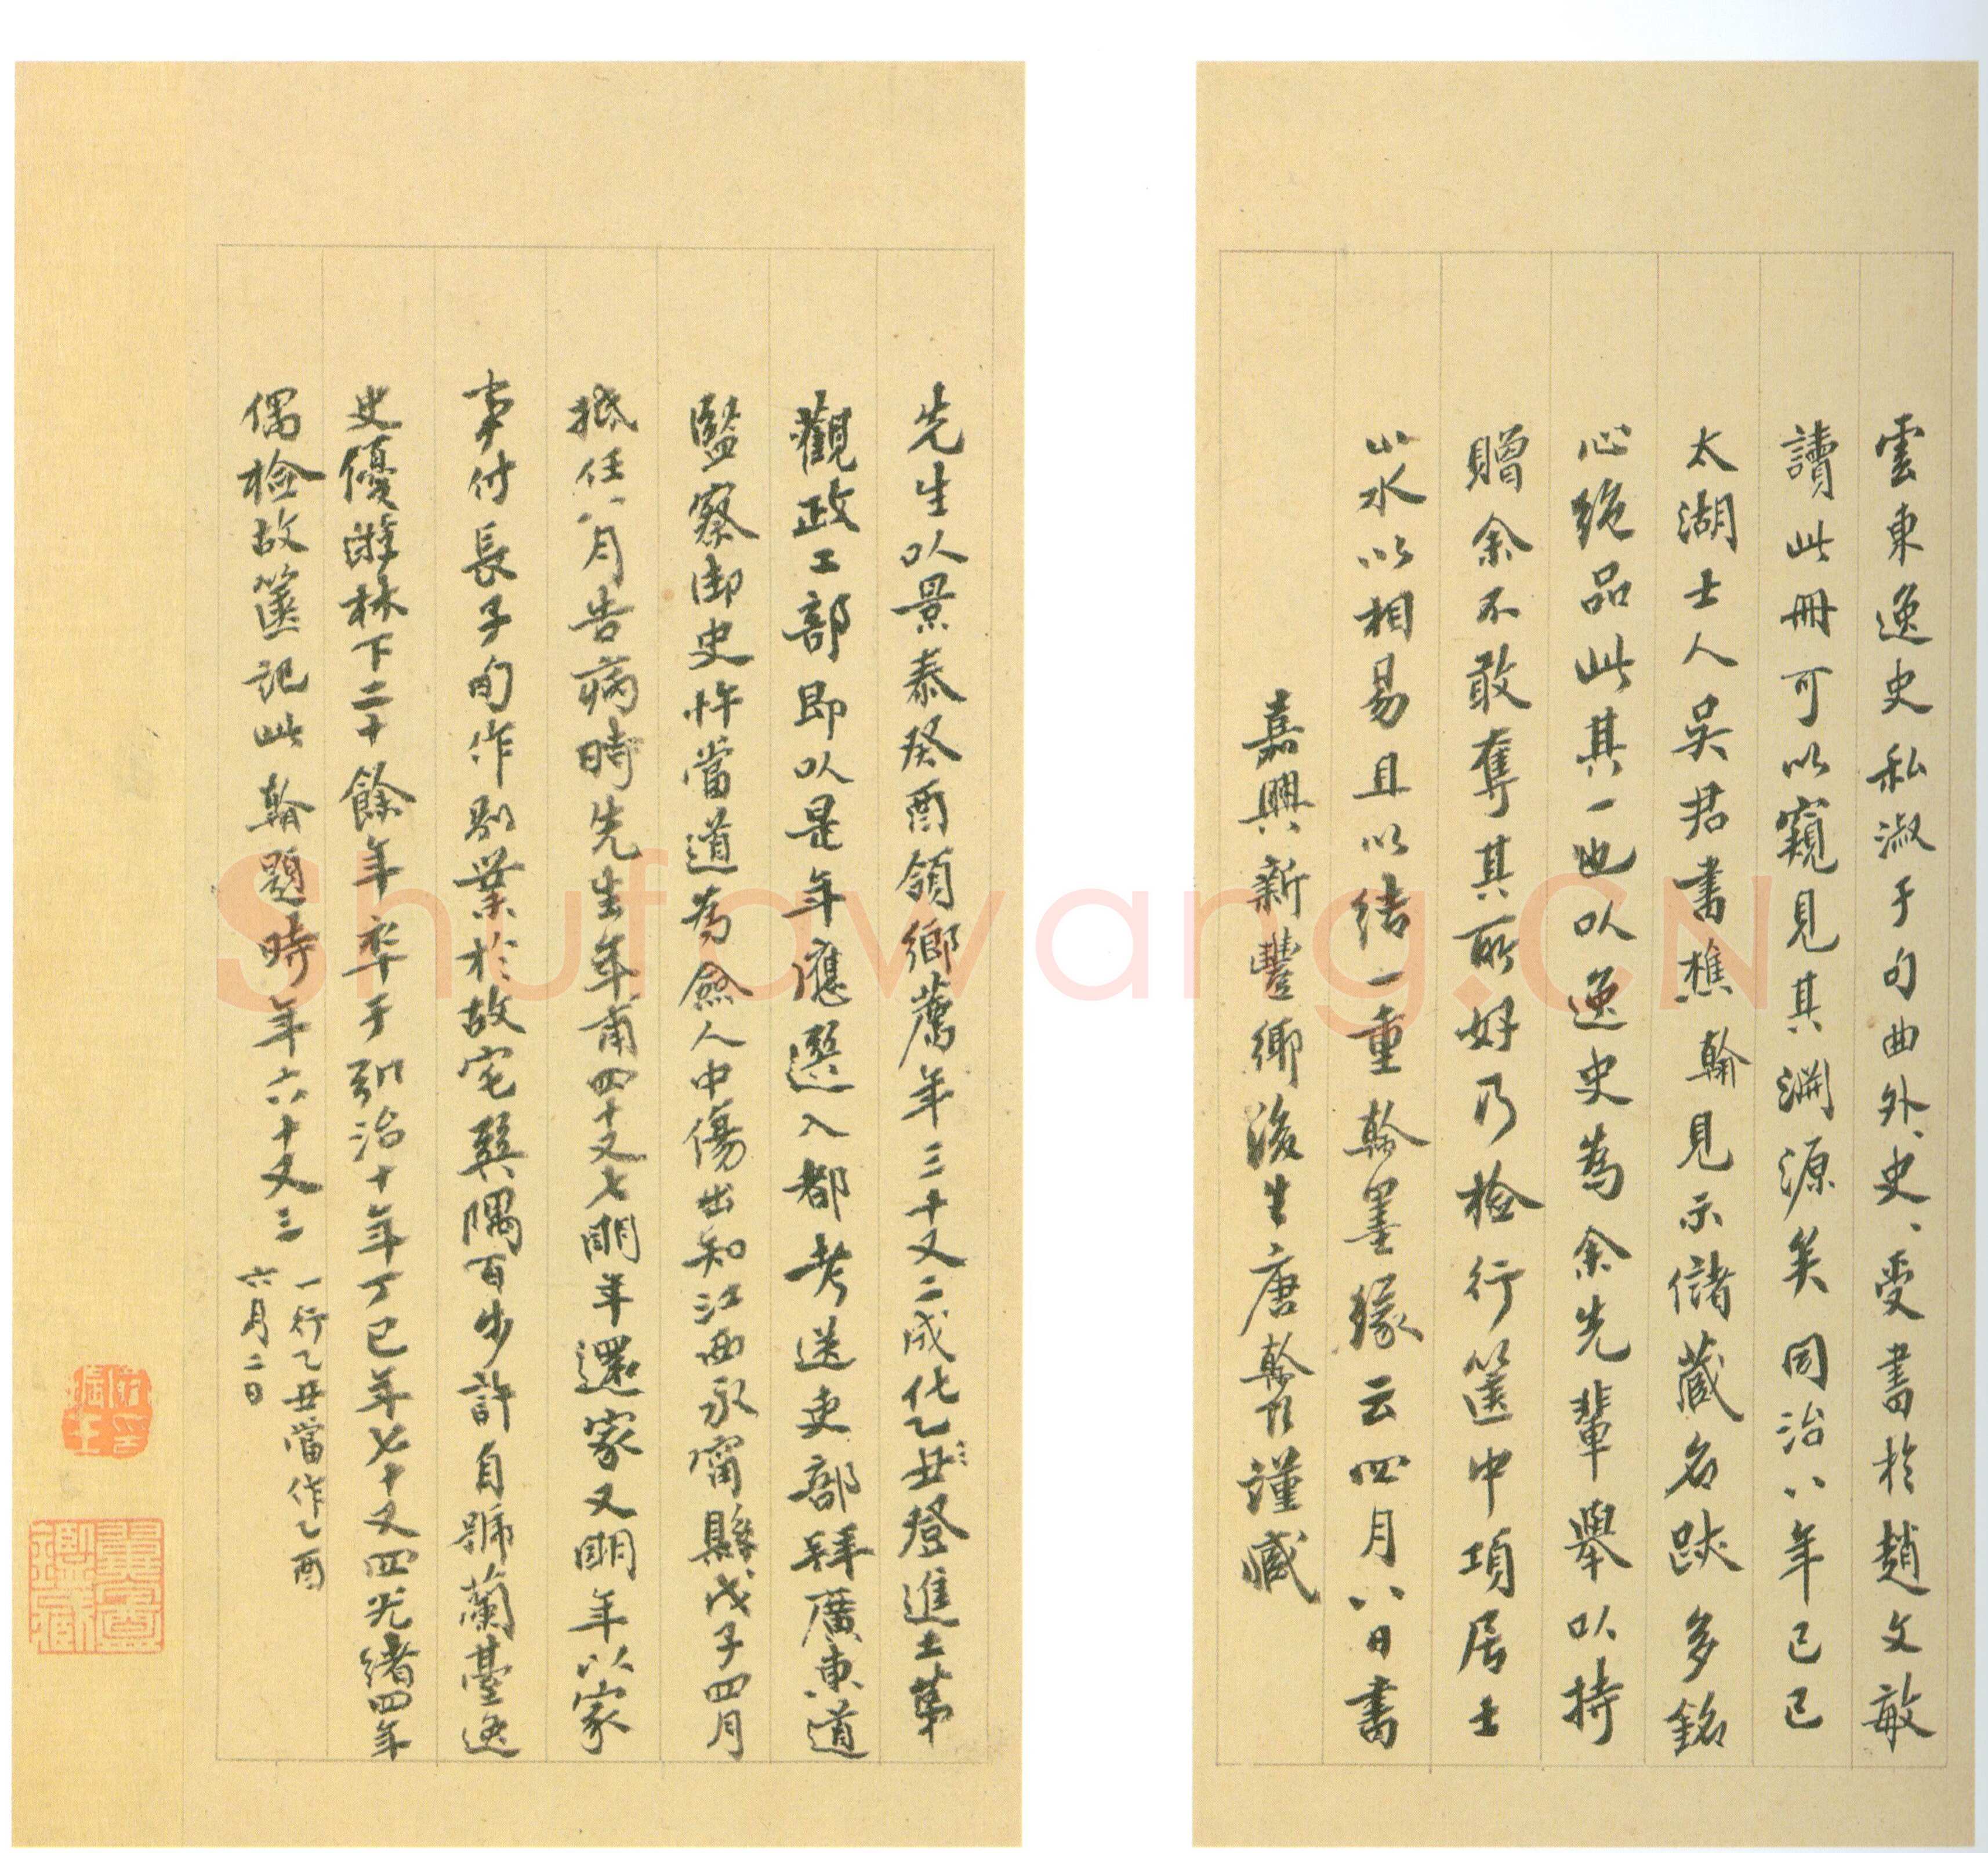 雲東逸史私淑于句曲外史、史、受書於趙文敏
讀此冊可以窺見其淵源矣同治八年己巳
太湖士人吳君書樵翰見示儲藏名跡多銘
心絶品此其一也以逸史為余先輩舉以持
贈余不敢奪其所好乃檢行篋中項居士
山水以相易且以結一重翰墨緣云四月八日書
嘉興新豐鄉後生唐翰題謹藏
先生以景泰癸酉領鄉薦年三十又二成化乙丑登進士第
觀政工部即以是年應選入都考送吏部拜廣東道
監察御史忤當道為僉人中傷出知江西永甯縣戊子四月
抵任八月告病時先生年甫四十又七明年還家又明年以家
事付長子旬作別業於故宅巽隅百步許自號蘭臺逸
史優游林下二十餘年卒于弘治十年丁巳年七十又四光緒四年
偶檢故篋記此翰題時年六十又三
一行乙丑當作乙酉
六月二日
Shufawang.CN